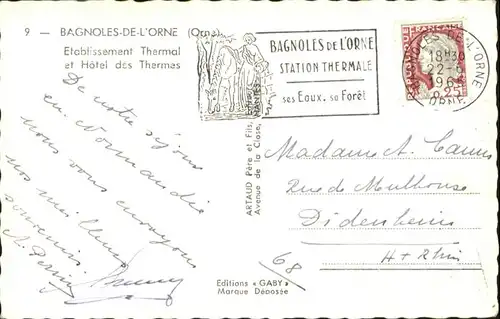 9 — BAGNOLES-DE-L'ORNE (Orne)
Etablissement Thermal
et Hôtel des Thermes
BAGNOLES DE L'ORNE
STATION THERMALE
ses Eaux. sa Forêt
BAGNOLES DE L'ORNE
18H30
22-
196
ORNE
FRANÇAISE
0.25
De notre séjour
en Normandie
nous vous envoyons
nos meilleurs
souvenirs
ARTAUD Père et Fils, Editeurs
Avenue de la Close, NANTES
Madame A.
Rue de Mulhouse
Didenheim
H + Rhin
68
Editions « GABY »
Marque Déposée